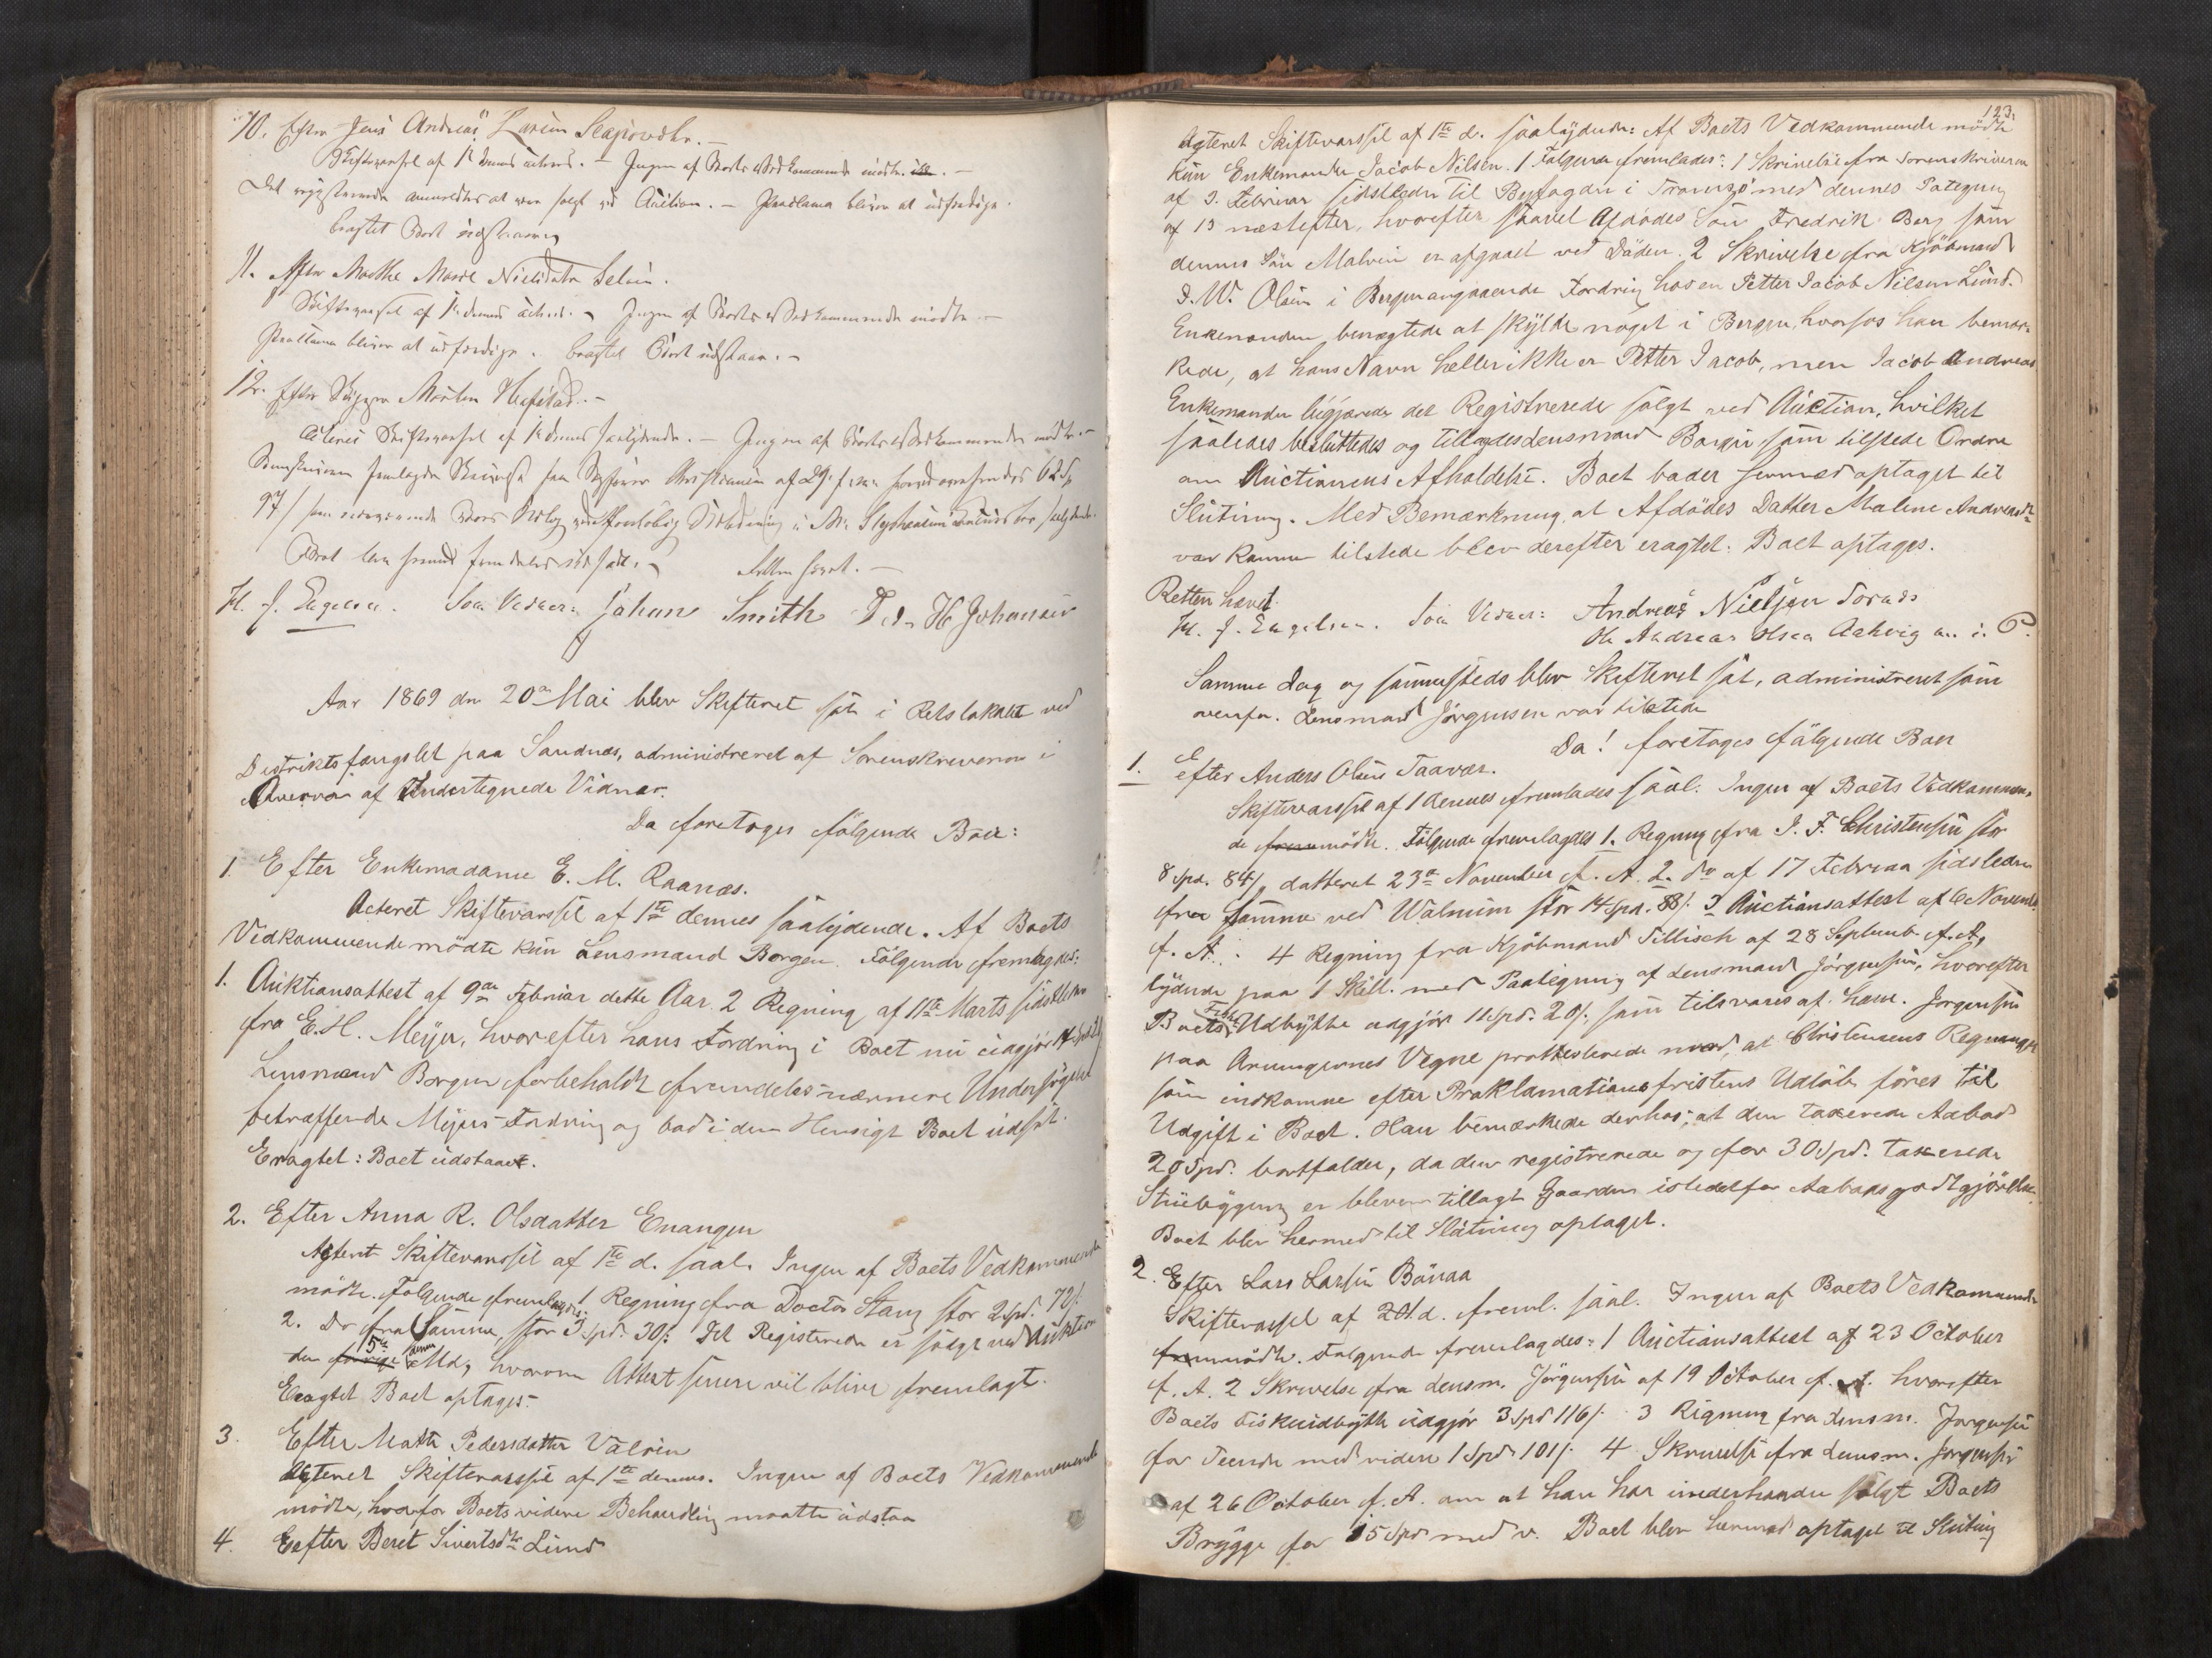 10. Efter Jens Andreas Larsen
Skiftevarsel af 1te dennes acteres. – Ingen af Boets Vedkommende mødte. –
Det registrerede anmeldtes at være solgt ved Auction. – Proclama bliver at udfærdige.
Eragtet Boet udstaaer
11. Efter Marthe Marie Nielsdatter
Skiftevarsel af 1te dennes acteres. – Ingen af Boets Vedkommende mødte –
Proclama bliver at udfærdige. Eragtet Boet udstaaer. –
12. Efter Morten –
Acteres Skiftevarsel af 1te dennes saalydende. – Ingen af Boets Vedkommende mødte –
Sorenskriveren fremlagde Skrivelse fra
97/ som
Boet blev fremdeles udsatt. – Retten hævet. –
H. J. Engelsen. Som Vidner: Johan Smith H Johansen
Aar 1869 den 20de Mai blev Skifteret sat i Retslokalet ved
Distriktsfængslet paa Sandnes, administreret af Sorenskriveren i
Overvær af Undertegnede Vidner.
Da foretoges følgende Boer:
1. Efter Enkemadame E. M. Raanæs.
Acteret Skiftevarssel af 1te dennes saalydende. Af Boets
Vedkommende mødte kun Lensmand Borgen. Følgende fremlagdes:
1. Auktionsattest af 9de Februar dette Aar. 2 Regning af 11te Marts sidstleden
fra E. H. Meyer, hvorefter hans Fordring i Boet nu udgjør
Lensmand Borgen forbeholdt fremdeles nærmere Undersøgelse
betræffende Meyers Fordring og bad i den Hensigt Boet udsat.
Eragtet: Boet udstaaer.
2. Efter Anna R. Olsdatter
Agteret Skiftevarssel af 1te d. saal. Ingen af Boets Vedkommende
mødte. Følgende fremlagdes: 1 Regning fra Doctor Stang stor 2 Spd. 72/.
2. Do fra Samme, stor 3 Spd. 30/: Det Registrerede er solgt ved Auktion
den forrige 5te dennes Md, hvorom Attest senere vil blive fremlagt.
Eragtet Boet optages.
3. Efter Martha Pedersdatter
Agteret Skiftevarssel af 1te dennes. Ingen af Boets Vedkommende
mødte, hvorfor Boets videre Behandling maatte udstaa
4. Efter Beret Sivertsdtr Lund
123.
Agteret Skiftevarssel af 1te d. saalydende: Af Boets Vedkommende mødte
kun Enkemanden Jacob Nilsen. Følgende fremlades: 1 Skrivelse fra Sorenskriveren
af 3. Februar sidstleden til Byfogden i Tromsø med dennes Pategning
af 13 næstefter, hvorefter saavel Afdødes Søn Fredrik Berg som
dennes Søn Malvin er afgaaet ved Døden. 2 Skrivelse fra Kjøbmand
J. W. Olsen i Bergen angaaende Fordring hos en Petter Jacob Nilsen Lund.
Enkemanden benægtede at skylde noget i Bergen, hvorhos han bemær-
kede, at hans Navn heller ikke er Petter Jacob, men Jacob Andreas
Enkemanden begjærede det Registrerede solgt ved Auction, hvilket
saaledes besluttedes og tillagdes Lensmand Borgen som tilstede Ordre
om Auctionens Afholdelse. Boet bades hermed optaget til
Slutning. Med Bemærkning, at Afdødes Datter Maline Andreasdtr
var kommen tilstede blev derefter eragtet: Boet optages.
Retten hævet.
H. J. Engelsen. Som Vidner: Andreas Nielsen
Ole Andreas Olsen m. i. P.
Samme Dag og sammesteds blev Skifteret sat, administreret som
ovenfor. Lensmand Jørgensen var tilstede
Da! foretoges følgende Boer
1. Efter Anders Olsen Taavær.
Skiftevarssel af 1 dennes fremlades saal. Ingen af Boets Vedkommen-
de mødte. Følgende fremlagdes 1. Regning fra J. F. Christensen stor
8 Spd. 84/ datteret 23de November f. A. 2. do af 17 Februar sidstleden
fra Samme ved Walnum stor 14 Spd. 88/. 3 Auctionsattest af 6 Novemb.
f. A. 4 Regning fra Kjøbmand Tillisch af 28 Septemb. f. A,
lydende paa 1 Skill. med Paategning af Lensmand Jørgensen, hvorefter
Boets Udbytte udgjør 11 Spd. 20/. som tilsvares af ham. Jørgensen
paa Arvingernes Vegne protesterede mod, at Christensens Regninger
som indkomne efter Proklamationsfristens Udløb føres til
Udgift i Boet. Han bemærkede derhos, at den taxerede Aabod
20 Spd. bortfalder, da den registrerede og for 30 Spd. taxerede
Stuebygning er bleven tillagt Gaarden istedetfor Aabods
Boet blev hermed til Slutning optaget.
2. Efter Lars Larsen
Skiftevarssel af d. freml. saal. Ingen af Boets Vedkommende
mødte. Følgende fremlagdes: 1 Auctionsattest af 23 October
f. A. 2 Skrivelse fra Lensm. Jørgensen af 19 October f. A. hvorefter
Boets udgjør 3 Spd 116/. 3 Regning fra Lensm. Jørgensen
for Teende med videre 1 Spd. 101/. 4 Skrivelse fra Lensm. Jørgensen
af 26 October f. A. om at han har underhaanden solgt Boets
Brygge for 15 Spd med v. Boet blev hermed optaget til Slutning